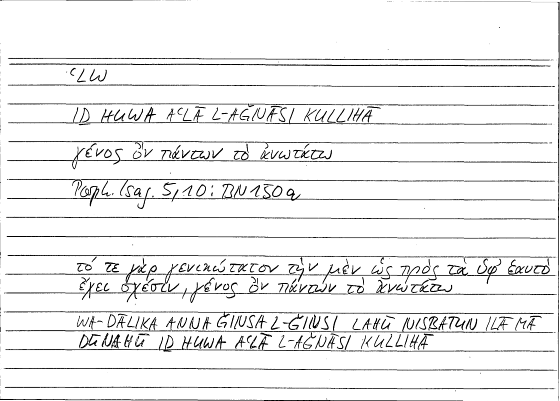 ʿLW
IḎ HUWA AʿLĀ L-AǦNĀSI KULLIHĀ
γένος ὂν πάντων τὸ ἀνωτάτω
Porph. Isag. 5,10: BN150a
τό τε γὰρ γενικώτατον τὴν μὲν ὡς πρὸς τὰ ὑφ' ἑαυτὸ
ἔχει σχέσιν, γένος ὂν πάντων τὸ ἀνωτάτω
WA-ḎĀLIKA ANNA ǦINSA L-ǦINSI LAHŪ NISBATUN ILĀ MĀ
DŪNAHŪ IḎ HUWA AʿLĀ L-AǦNĀSI KULLIHĀ